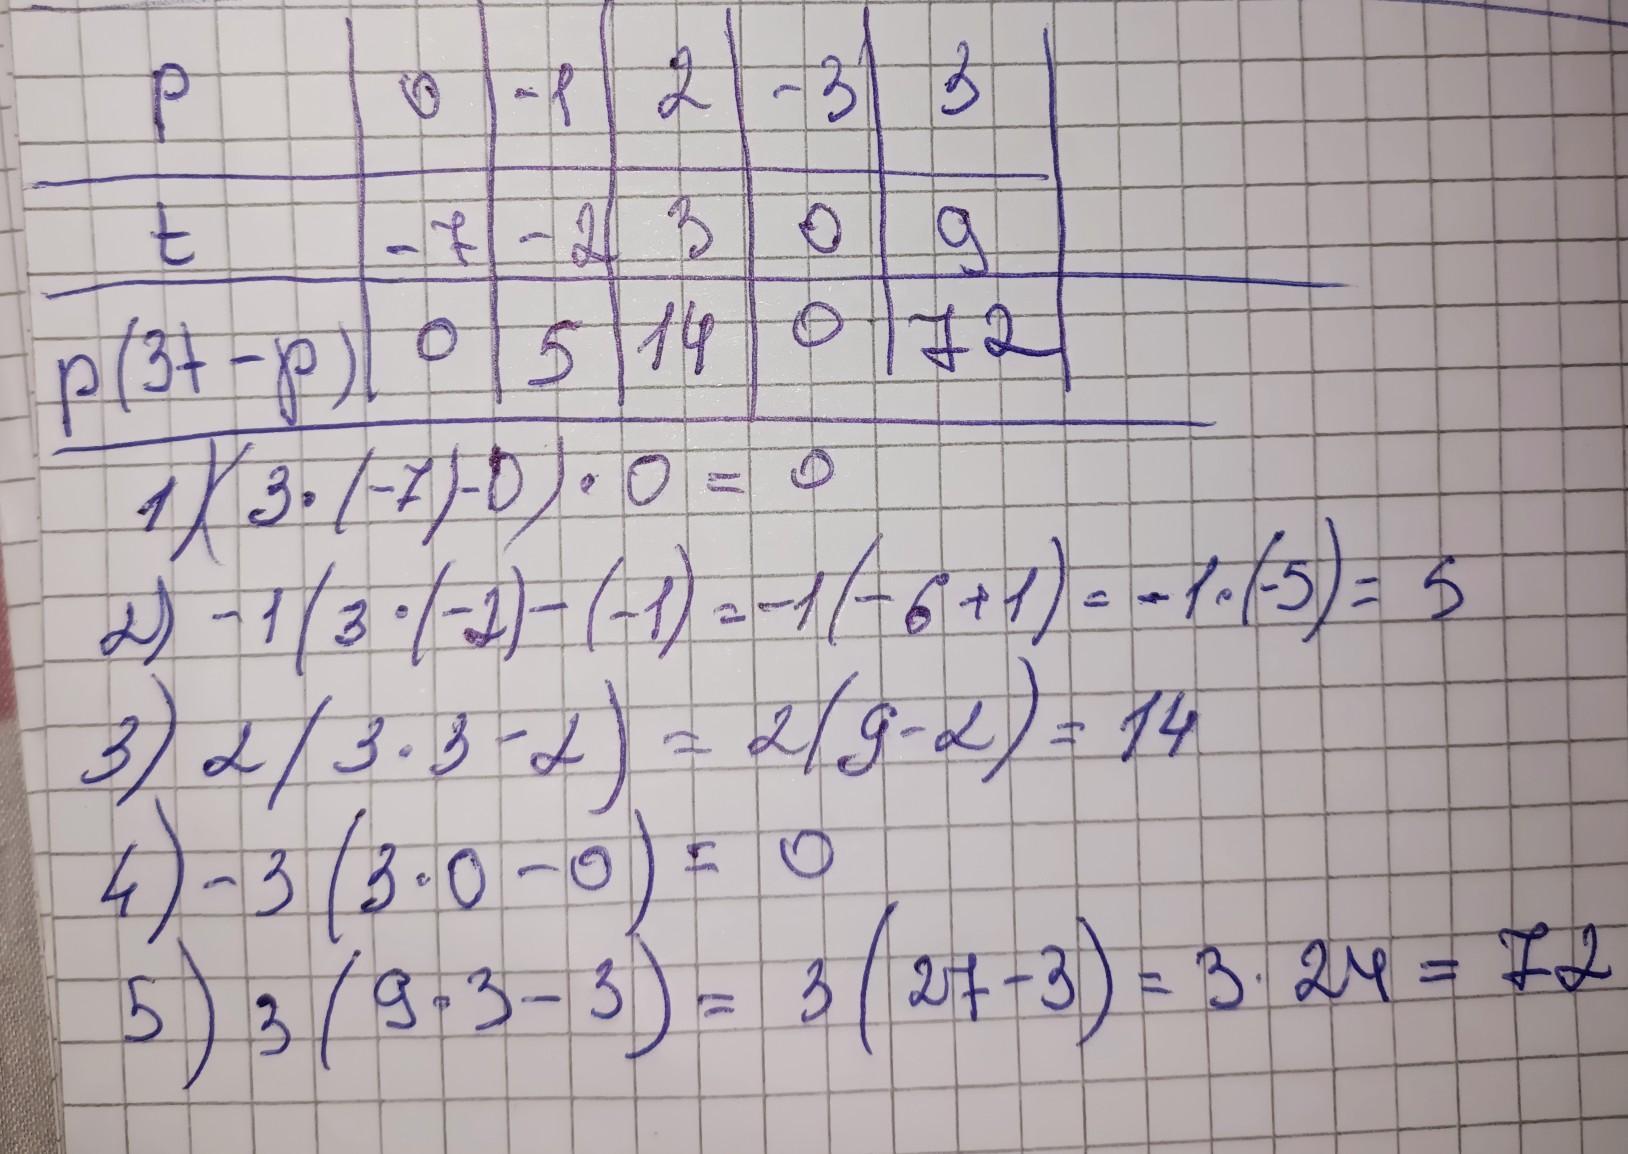 p 0 -1 2 -3 3
t -7 -2 3 0 9
p(3t-p) 0 5 14 0 72
1) (3·(-7)-0)·0 = 0
2) -1(3·(-2)-(-1) = -1(-6+1) = -1·(-5) = 5
3) 2(3·3-2) = 2(9-2) = 14
4) -3(3·0-0) = 0
5) 3(9·3-3) = 3(27-3) = 3·24 = 72